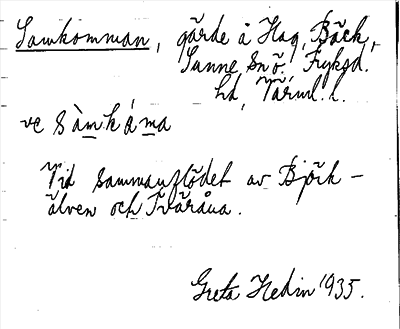 Samkomman, gärde å Hag, Bäck,
Sunne sn ö., Fryksd.
hd, Värml. l.
ve sàmkáma
Vid sammanflödet av Björk-
älven och Tvåråua.
Greta Hedin 1935.